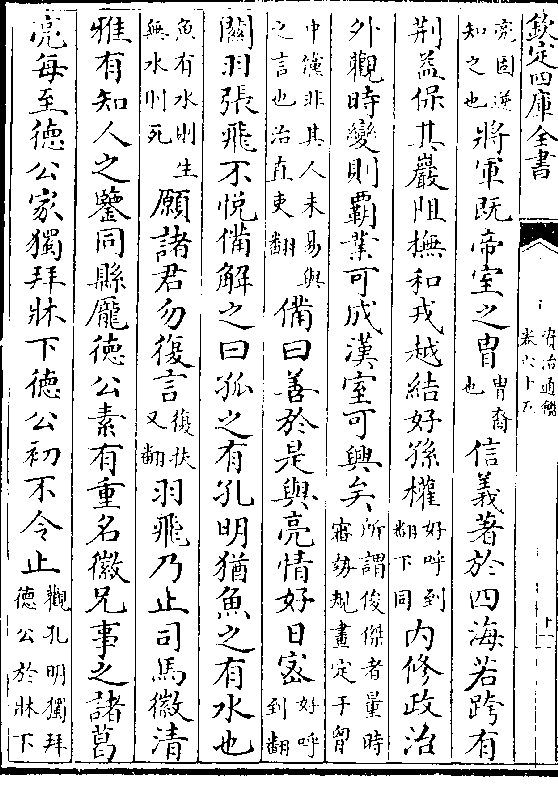 欽定四庫全書
資治通鑑
卷六十五
十一
亮固逆知之也將軍既帝室之胄胄裔也信義著於四海若跨有
荆益保其巖阻撫和戎越結好孫權好呼到翻下同内修政治
外觀時變則覇業可成漢室可興矣所謂俊傑者量時審勢規畫定于胷
中儻非其人未易與之言也治直吏翻備曰善於是與亮情好日宻好呼到翻
關羽張飛不悦備解之曰孤之有孔明猶魚之有水也
魚有水則生無水則死願諸君勿復言復扶又翻羽飛乃止司馬徽清
雅有知人之鑒同縣龐德公素有重名徽兄事之諸葛
亮每至德公家獨拜牀下德公初不令止觀孔明獨拜德公於牀下